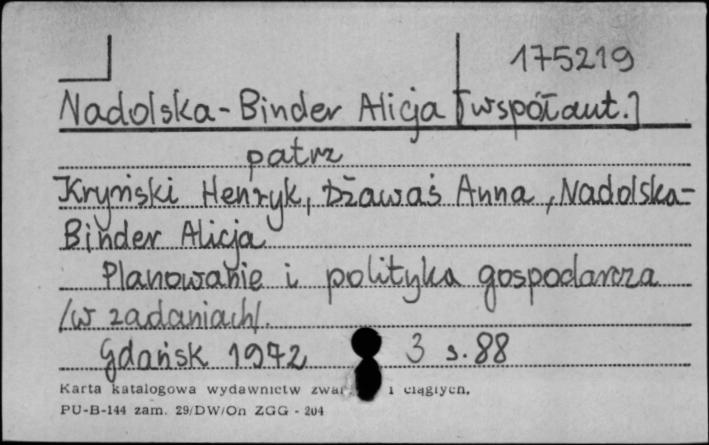 175219
Nadolska-Binder Alicja [współaut.]
patrz
Kryński Henryk, Dżawaś Anna, Nadolska-
Binder Alicja
Planowanie i polityka gospodarcza
/w zadaniach/.
Gdańsk 1972 3 s. 88
Karta katalogowa wydawnictw i ciągłych,
PU-B-144 zam. 29/DW/On ZGG - 204